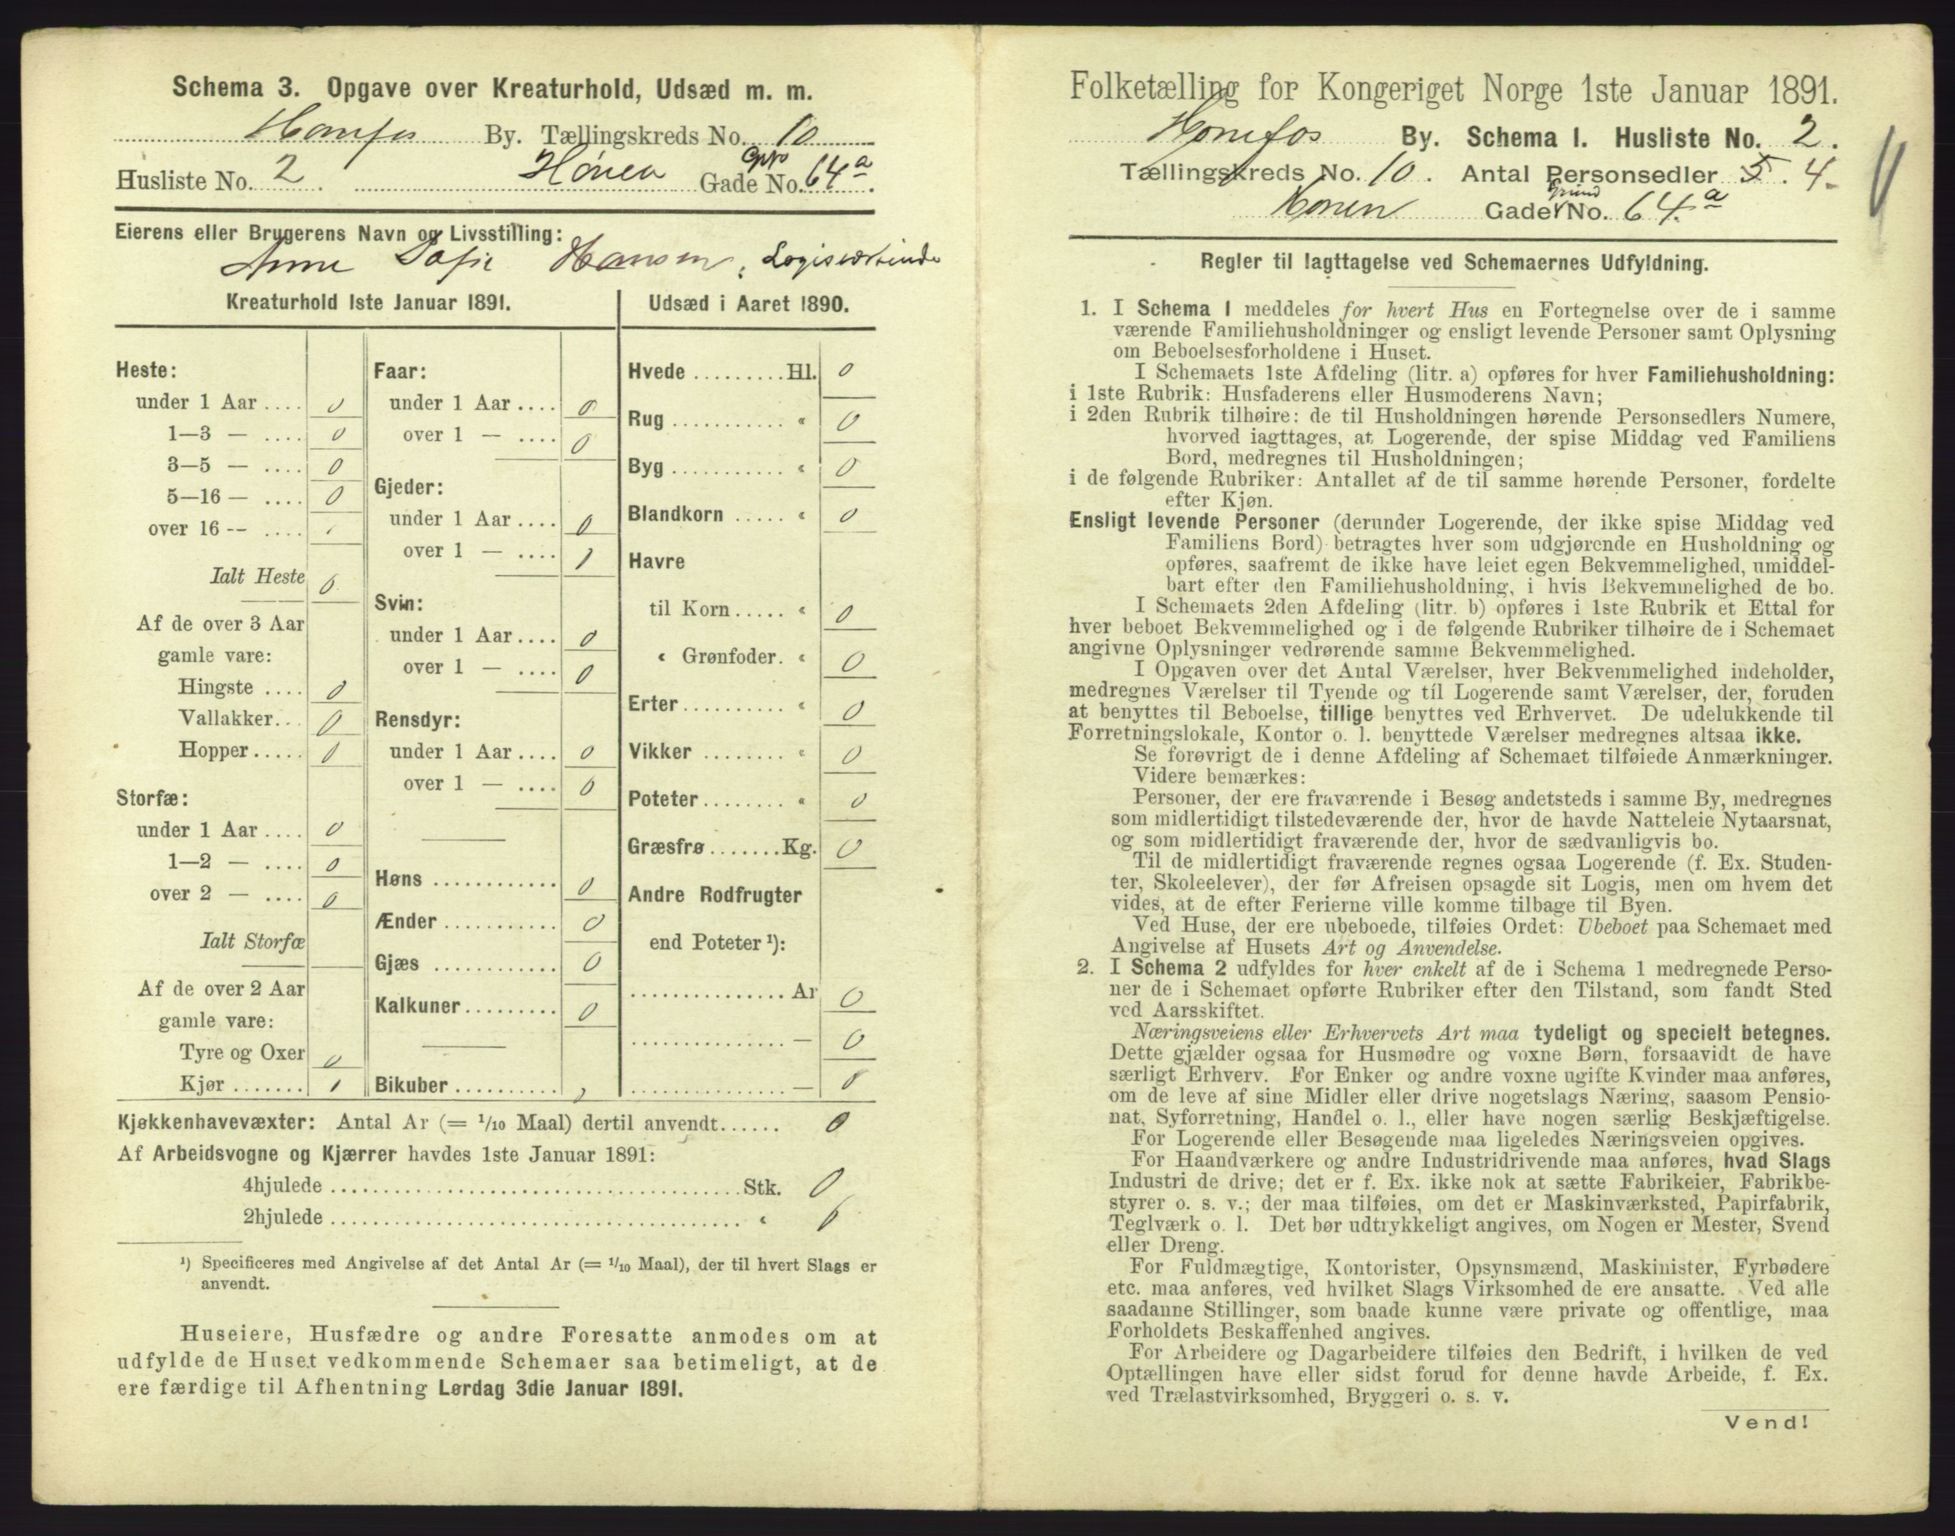 Schema 3. Opgave over Kreaturhold, Udsæd m. m.
Hønefos By. Tællingskreds No. 10
Husliste No. 2. Hønen Gade No. 64a.
Eierens eller Brugerens Navn og Livsstilling:
Anne Sofie Hansen, Logisværtinde
Kreaturhold 1ste Januar 1891.
Heste:
under 1 Aar .... 0
1—3 — .... 0
3—5 — .... 0
5—16 — .... 0
over 16 -- ....
Ialt Heste 0
Af de over 3 Aar
gamle vare:
Hingste .... 0
Vallakker... 0
Hopper..... 0
Storfæ:
under 1 Aar .... 0
1—2 — .... 0
over 2 — .... 0
Ialt Storfæ
Af de over 2 Aar
gamle vare:
Tyre og Oxer 0
Kjør ....... 1
Faar:
under 1 Aar .... 0
over 1 — .... 0
Gjeder:
under 1 Aar.... 0
over 1 — .... 1
Svin:
under 1 Aar.... 0
over 1 — .... 0
Rensdyr:
under 1 Aar... 0
over 1 — .... 0
Høns ............ 0
Ænder ........... 0
Gjæs ............ 0
Kalkuner......... 0
Bikuber..........
Udsæd i Aaret 1890.
Hvede .........Hl. 0
Rug ........... « 0
Byg ........... « 0
Blandkorn ..... « 0
Havre
til Korn..... « 0
« Grønfoder. « 0
Erter.......... « 0
Vikker ........ « 0
Poteter........ « 0
Græsfrø.......Kg. 0
Andre Rodfrugter
end Poteter ¹):
............... Ar 0
............... — 0
............... — 0
Kjøkkenhavevæxter: Antal Ar (= 1/10 Maal) dertil anvendt...... 0
Af Arbeidsvogne og Kjærrer havdes 1ste Januar 1891:
4hjulede ........................................Stk. 0
2hjulede ........................................ « 0
¹) Specificeres med Angivelse af det Antal Ar (= 1/10 Maal), der til hvert Slags er
anvendt.
Huseiere, Husfædre og andre Foresatte anmodes om at
udfylde de Huset vedkommende Schemaer saa betimeligt, at de
ere færdige til Afhentning Lørdag 3die Januar 1891.
Folketælling for Kongeriget Norge 1ste Januar 1891.
Hønefos By. Schema 1. Husliste No. 2.
Tællingskreds No. 10. Antal Personsedler 5. 4.
Hønen Gade Grund No. 64.a
Regler til Iagttagelse ved Schemaernes Udfyldning.
1. I Schema 1 meddeles for hvert Hus en Fortegnelse over de i samme
værende Familiehusholdninger og ensligt levende Personer samt Oplysning
om Beboelsesforholdene i Huset.
I Schemaets 1ste Afdeling (litr. a) opføres for hver Familiehusholdning:
i 1ste Rubrik: Husfaderens eller Husmoderens Navn;
i 2den Rubrik tilhøire: de til Husholdningen hørende Personsedlers Numere,
hvorved iagttages, at Logerende, der spise Middag ved Familiens
Bord, medregnes til Husholdningen;
i de følgende Rubriker: Antallet af de til samme hørende Personer, fordelte
efter Kjøn.
Ensligt levende Personer (derunder Logerende, der ikke spise Middag ved
Familiens Bord) betragtes hver som udgjørende en Husholdning og
opføres, saafremt de ikke have leiet egen Bekvemmelighed, umiddel-
bart efter den Familiehusholdning, i hvis Bekvemmelighed de bo.
I Schemaets 2den Afdeling (litr. b) opføres i 1ste Rubrik et Ettal for
hver beboet Bekvemmelighed og i de følgende Rubriker tilhøire de i Schemaet
angivne Oplysninger vedrørende samme Bekvemmelighed.
I Opgaven over det Antal Værelser, hver Bekvemmelighed indeholder,
medregnes Værelser til Tyende og til Logerende samt Værelser, der, foruden
at benyttes til Beboelse, tillige benyttes ved Erhvervet. De udelukkende til
Forretningslokale, Kontor o. l. benyttede Værelser medregnes altsaa ikke.
Se forøvrigt de i denne Afdeling af Schemaet tilføiede Anmærkninger.
Videre bemærkes:
Personer, der ere fraværende i Besøg andetsteds i samme By, medregnes
som midlertidigt tilstedeværende der, hvor de havde Natteleie Nytaarsnat,
og som midlertidigt fraværende der, hvor de sædvanligvis bo.
Til de midlertidigt fraværende regnes ogsaa Logerende (f. Ex. Studen-
ter, Skoleelever), der før Afreisen opsagde sit Logis, men om hvem det
vides, at de efter Ferierne ville komme tilbage til Byen.
Ved Huse, der ere ubeboede, tilføies Ordet: Ubeboet paa Schemaet med
Angivelse af Husets Art og Anvendelse.
2. I Schema 2 udfyldes for hver enkelt af de i Schema 1 medregnede Perso-
ner de i Schemaet opførte Rubriker efter den Tilstand, som fandt Sted
ved Aarsskiftet.
Næringsveiens eller Erhvervets Art maa tydeligt og specielt betegnes.
Dette gjælder ogsaa for Husmødre og voxne Børn, forsaavidt de have
særligt Erhverv. For Enker og andre voxne ugifte Kvinder maa anføres,
om de leve af sine Midler eller drive nogetslags Næring, saasom Pensio-
nat, Syforretning, Handel o. l., eller have nogen særlig Beskjæftigelse.
For Logerende eller Besøgende maa ligeledes Næringsveien opgives.
For Haandværkere og andre Industridrivende maa anføres, hvad Slags
Industri de drive; det er f. Ex. ikke nok at sætte Fabrikeier, Fabrikbe-
styrer o. s. v.; der maa tilføies, om det er Maskinværksted, Papirfabrik,
Teglværk o. l. Det bør udtrykkeligt angives, om Nogen er Mester, Svend
eller Dreng.
For Fuldmægtige, Kontorister, Opsynsmænd, Maskinister, Fyrbødere
etc. maa anføres, ved hvilket Slags Virksomhed de ere ansatte. Ved alle
saadanne Stillinger, som baade kunne være private og offentlige, maa
Forholdets Beskaffenhed angives.
For Arbeidere og Dagarbeidere tilføies den Bedrift, i hvilken de ved
Optællingen have eller sidst forud for denne havde Arbeide, f. Ex.
ved Trælastvirksomhed, Bryggeri o. s. v.
Vend!